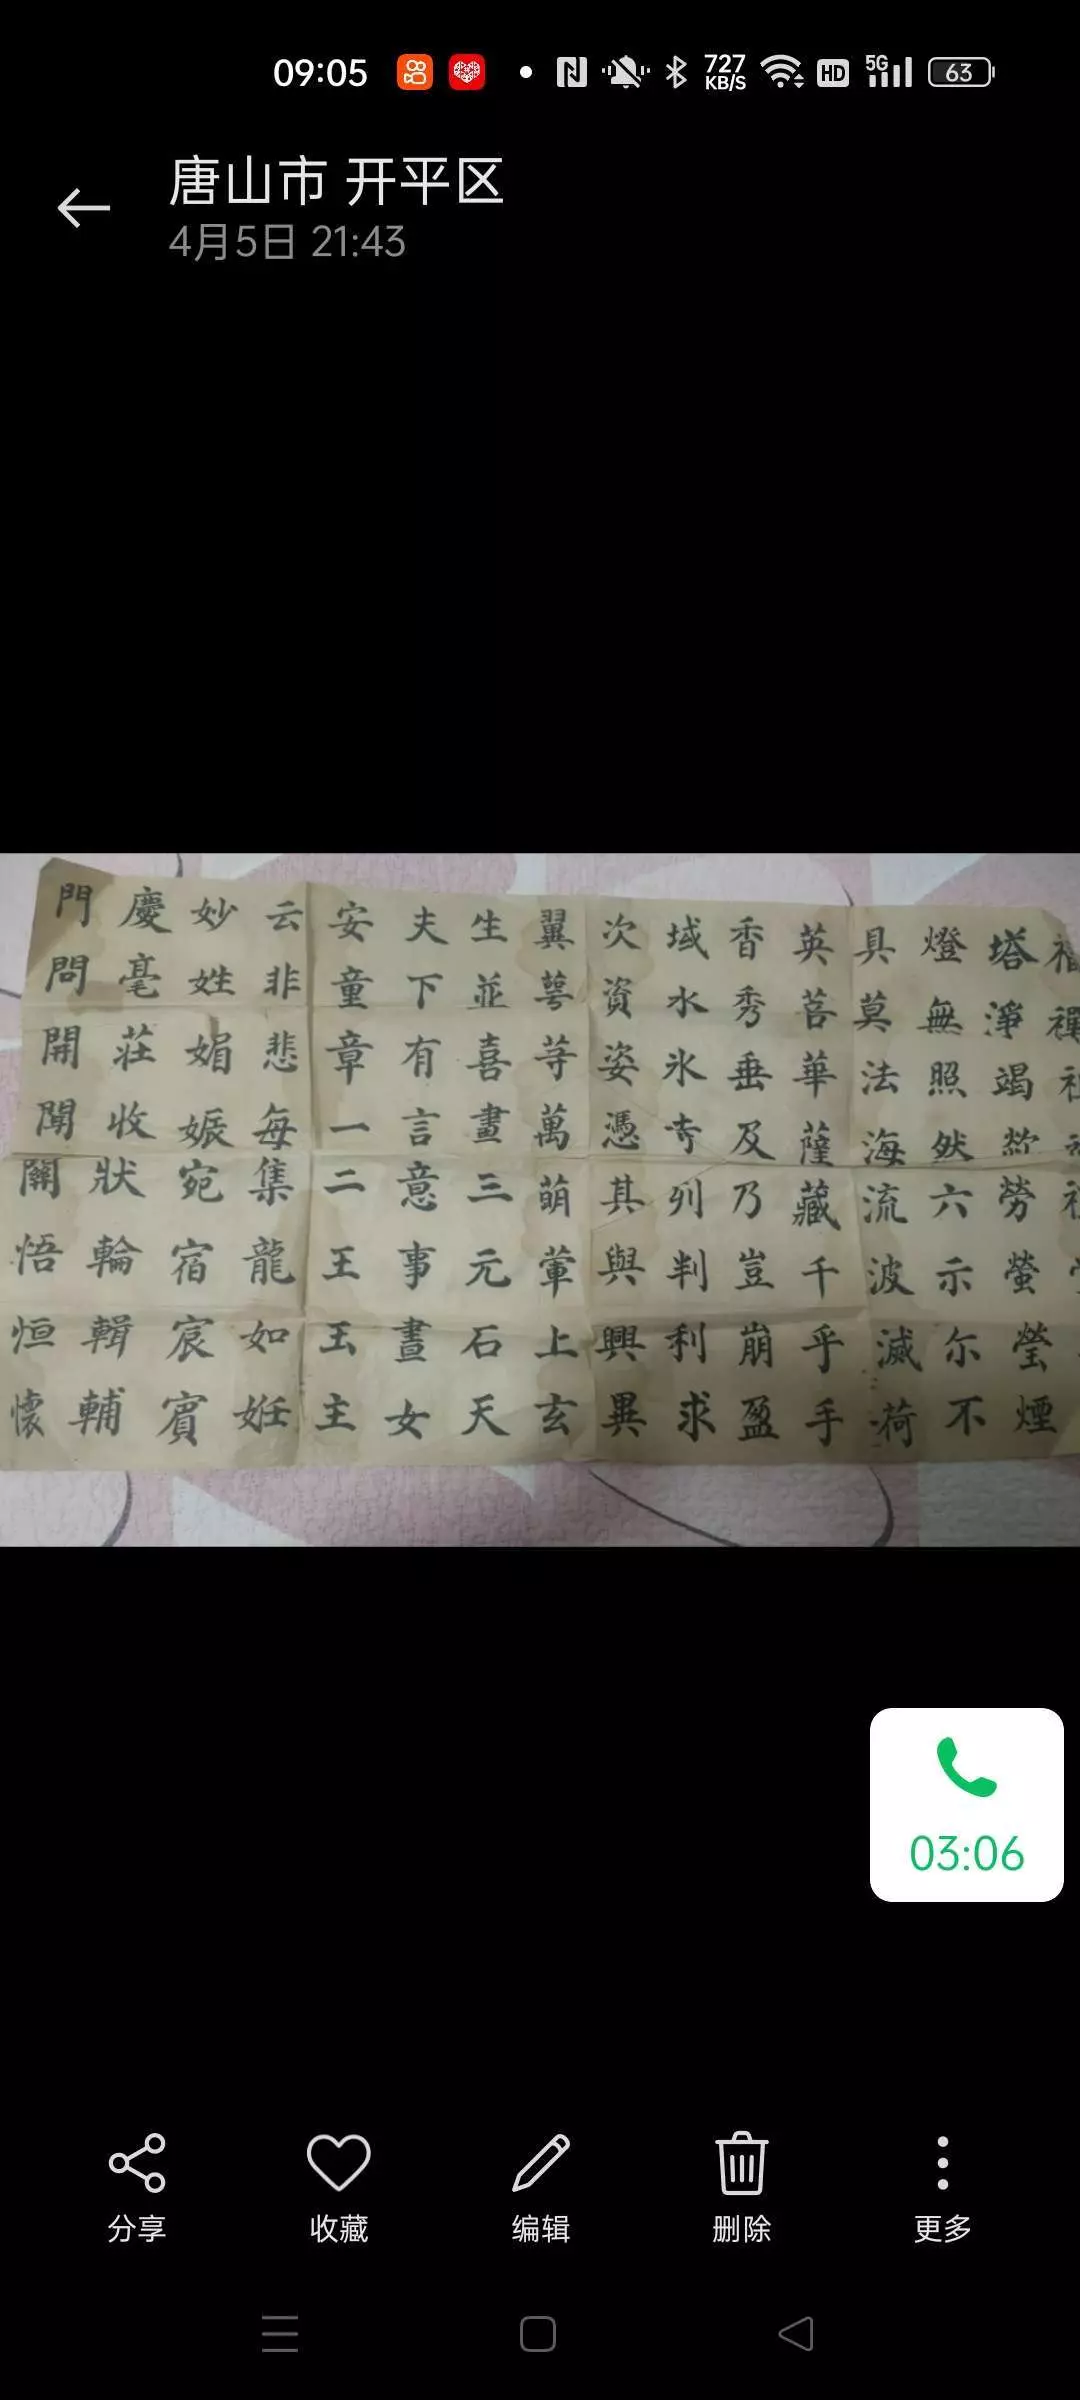 09:05
727 KB/S
HD
5G
63
唐山市 开平区
4月5日 21:43
塔淨竭勞螢瑩煙
燈無照然六示尔不
具莫法海流波滅荷
英菩華薩藏千乎手
香秀垂及乃豈崩盈
域水氷列判利求
次資姿憑其與興異
翼萼等萬萌葷上玄
生並喜畫三元石天
夫下有言意事晝女
安童章一二王玉主
云非悲每集龍如妊
妙姓娟娠宛宿宸賓
慶毫莊收狀輪輯輔
門問開聞關悟恒懷
03:06
分享
收藏
编辑
删除
更多